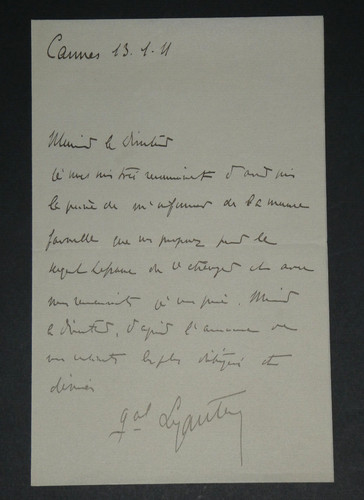 Cannes 13.1.11
Monsieur le Directeur
Je vous suis très reconnaissant d'avoir pris
la peine de m'informer de la mesure
favorable que vous proposez pour le
de et avec
mes remerciements je vous prie, Monsieur
le Directeur, d'agréer l'assurance de
mes sentiments les plus obligés et
dévoués
Gal Lyautey